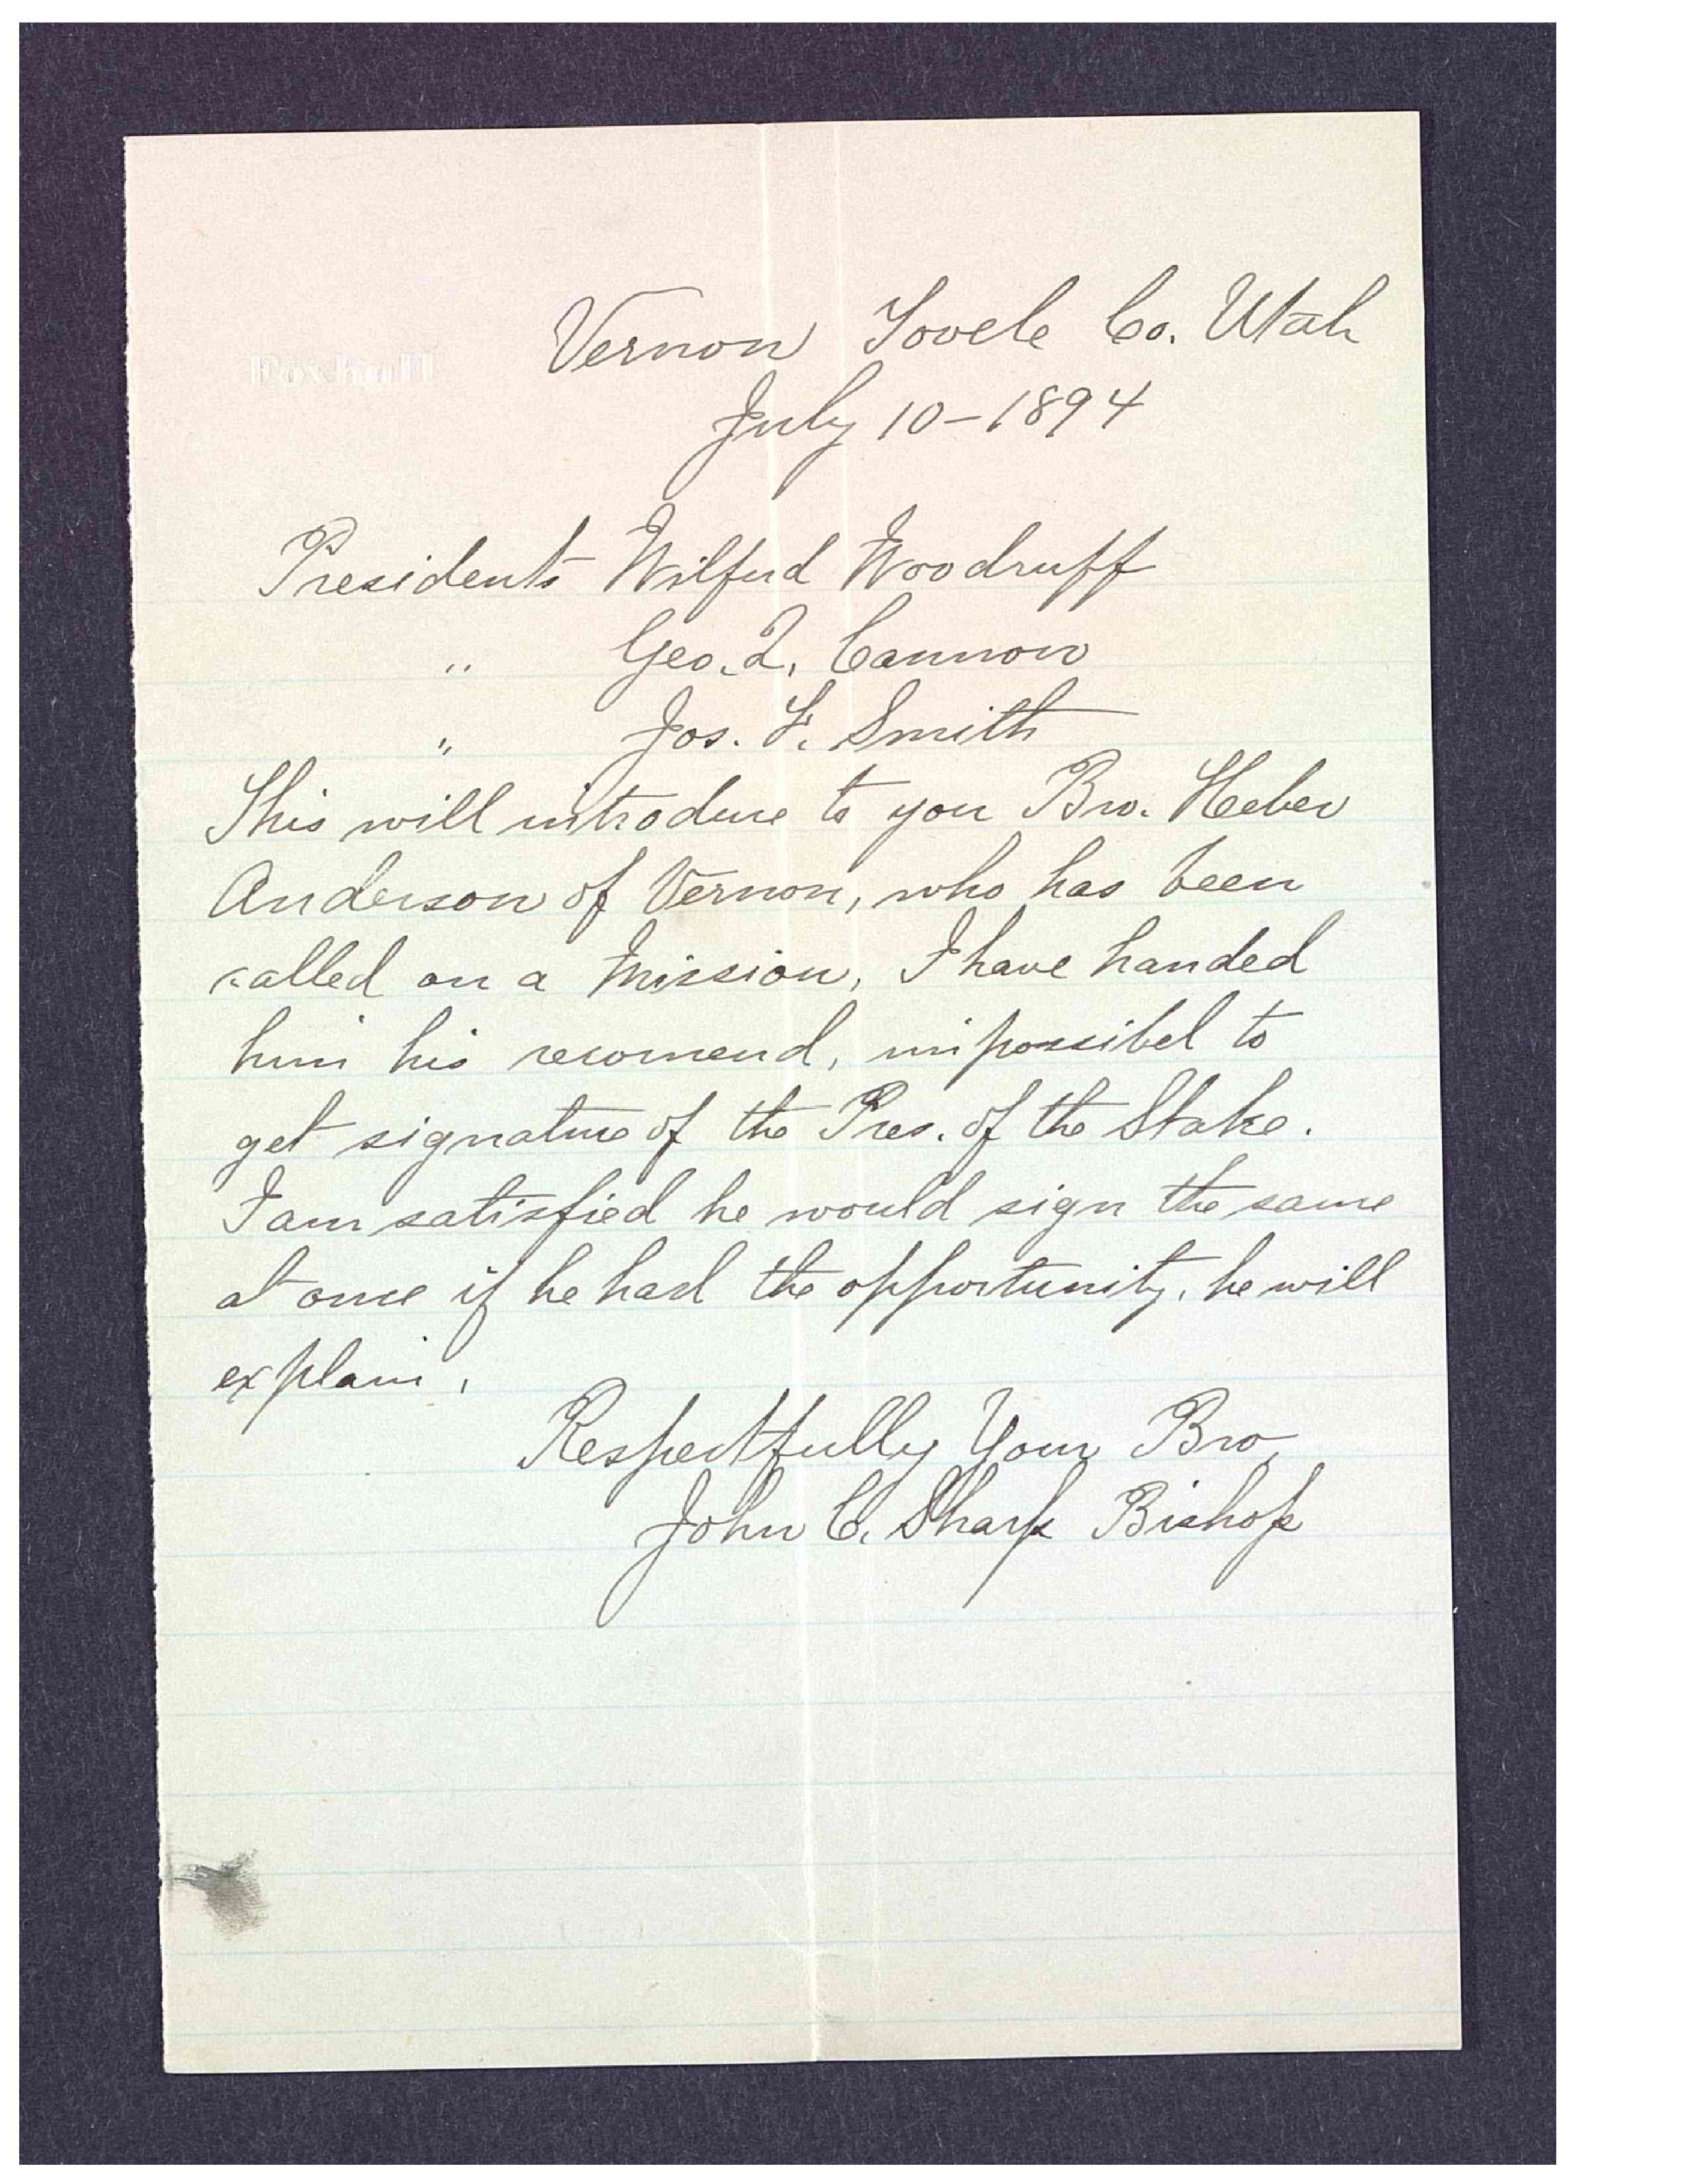 Vernon Tooele Co. Utah
Foxhull
July 10-1894
Presidents Wilfud Woodruff
" Geo. Q. Cannon
" Jos. F. Smith
This will introduce to you Bro. Heber
Anderson of Vernon, who has been
called on a Mission, I have handed
him his recomend, impossibel to
get signature of the Pres. of the Stake.
I am satisfied he would sign the same
at once if he had the opportunity, he will
explain,
Respectfully Your Bro,
John C. Sharp Bishop